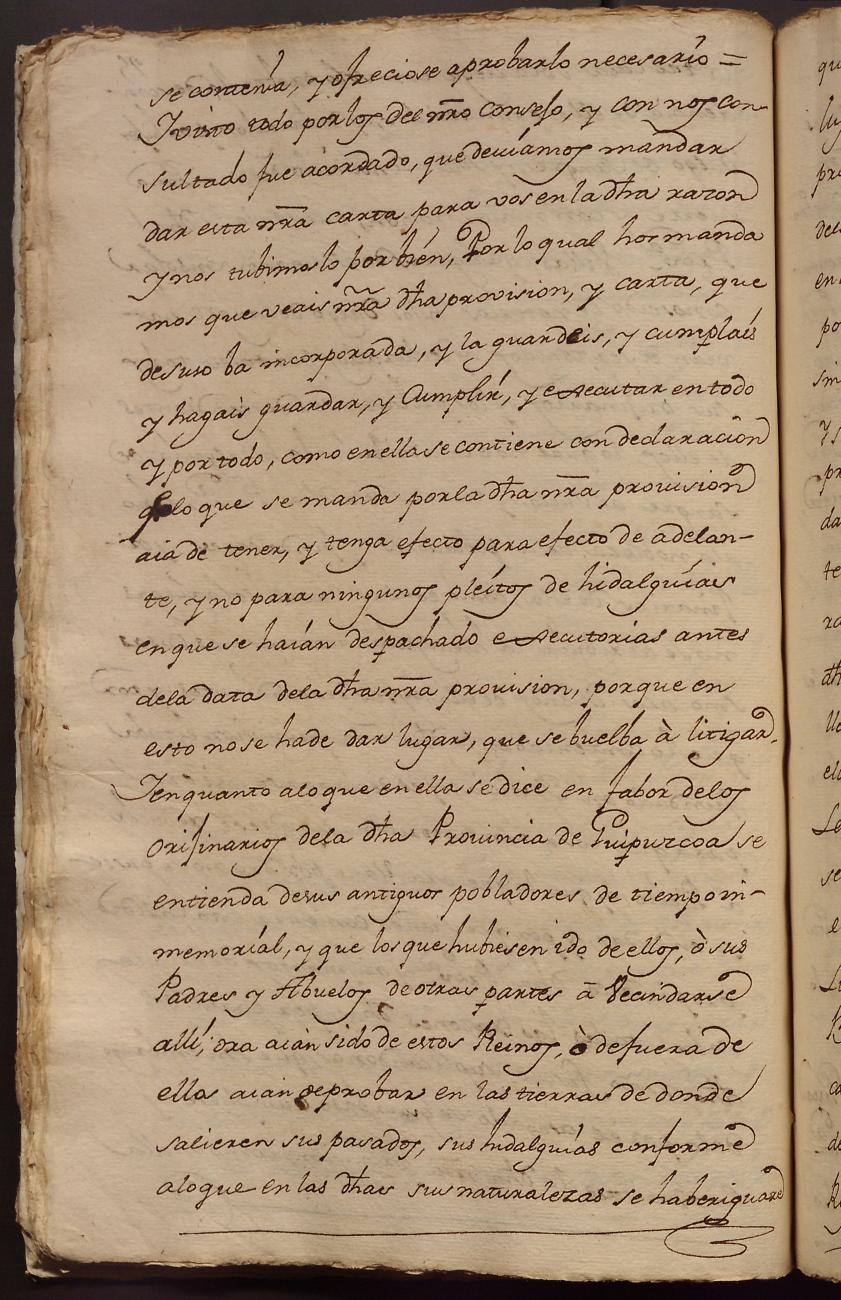 se contenía, y ofreciose aprobarlo necesario =
Y visto todo por los del nr̄o Consejo, y con nos con-
sultado fue acordado, que deviamos mandar
dar esta nr̄a carta para vos en la dh̄a razon
y nos tubimoslo por bién, Por lo qual hos manda
mos que veais nr̄a dh̄a provision, y carta, que
desuso ba incorporada, y la guardeis, y cumplaís
y hagais guardar, y Cumplír, y executar en todo
y por todo, como en ella se contiene con declaración
q̄ lo que se manda por la dh̄a nr̄a provisión
aia de tener, y tenga efecto para efecto de adelan-
te, y no para ningunos pleítos de hidalguíaes
en que se haián despachado executorias antes
dela data dela dh̄a nr̄a provision, porque en
esto no se hade dar lugar, que se buelba à litigar.
Y en quanto a lo que en ella se dice en fabor de los
Orijinarios dela dh̄a Provincia de Guipuzcoa se
entienda desus antiguos pobladores de tiempo in-
memoríal, y que los que hubiesen ido de ellos, ò sus
Padres y Abuelos de otras partes ā Vecindarse
allí, ora aian sido de estos Reinos, ò defuera de
ellos aian de probar en las tierras de donde
salieren sus pasados, sus hidalguías conforme
alo que en las dh̄aes sus naturalezas se haberiguare
qu
pr
del
en
po
sin
pr
da
te
ra
dh̄
ll
el
Le
se
e
ca
de